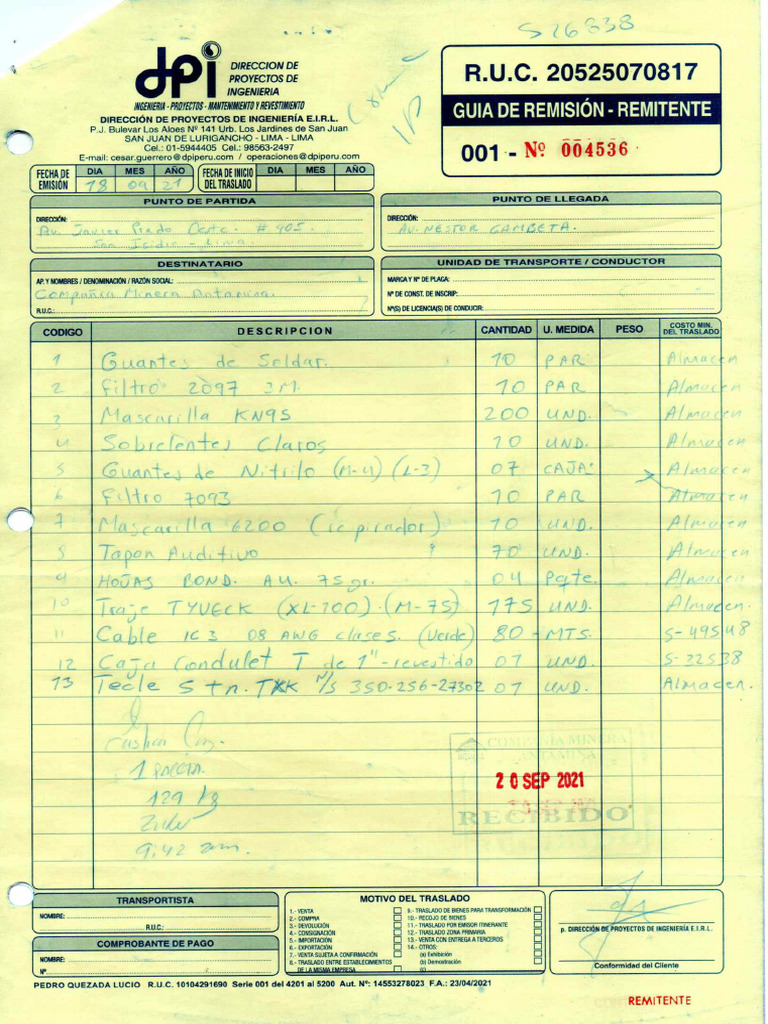 S26338
dpi
DIRECCION DE
PROYECTOS DE
INGENIERIA
INGENIERIA - PROYECTOS - MANTENIMIENTO Y REVESTIMIENTO
DIRECCIÓN DE PROYECTOS DE INGENIERÍA E.I.R.L.
P.J. Bulevar Los Aloes Nº 141 Urb. Los Jardines de San Juan
SAN JUAN DE LURIGANCHO - LIMA - LIMA
Cel.: 01-5944405 Cel.: 98563-2497
E-mail: cesar.guerrero@dpiperu.com / operaciones@dpiperu.com
R.U.C. 20525070817
GUIA DE REMISIÓN - REMITENTE
001 - Nº 004536
FECHA DE EMISIÓN DIA MES AÑO
18 09 21
FECHA DE INICIO DEL TRASLADO DIA MES AÑO
PUNTO DE PARTIDA
DIRECCIÓN:
Av. Javier Prado Oeste. # 905.
San Isidro - Lima.
PUNTO DE LLEGADA
DIRECCIÓN:
AV. NESTOR GAMBETA.
DESTINATARIO
AP. Y NOMBRES / DENOMINACIÓN / RAZÓN SOCIAL:
Compañia Minera Antamina.
R.U.C.:
UNIDAD DE TRANSPORTE / CONDUCTOR
MARCA Y Nº DE PLACA:
Nº DE CONST. DE INSCRIP.:
Nº(S) DE LICENCIA(S) DE CONDUCIR:
CODIGO DESCRIPCION CANTIDAD U. MEDIDA PESO COSTO MIN. DEL TRASLADO
1 Guantes de Soldar. 10 PAR Almacen
2 Filtro 2097 3M. 10 PAR Almacen
3 Mascarilla KN95 200 UND. Almacen
4 Sobrelentes Claros 10 UND. Almacen
5 Guantes de Nitrilo (M-4) (L-3) 07 CAJA. Almacen
6 Filtro 7093 10 PAR Almacen
7 Mascarilla 6200 (respirador) 10 UND. Almacen
8 Tapon Auditivo 70 UND. Almacen
9 HOJAS BOND. A4. 75gr. 04 Pqte. Almacen
10 Traje TYVECK (XL-100) (M-75) 175 UND. Almacen.
11 Cable 1C3 08 AWG clase5. (Verde) 80 - MTS. S-49548
12 Caja Condulet T de 1" - revestido 01 UND. S-22538
13 Tecle 5 tn. TXK N/S 350-256-27302 01 UND. Almacen.
129 kg
9:42 am.
COMPAÑIA MINERA
ANTAMINA
20 SEP 2021
RECIBIDO
TRANSPORTISTA
NOMBRE:
R.U.C.:
COMPROBANTE DE PAGO
NOMBRE:
Nº
MOTIVO DEL TRASLADO
1.- VENTA
2.- COMPRA
3.- DEVOLUCIÓN
4.- CONSIGNACIÓN
5.- IMPORTACIÓN
6.- EXPORTACIÓN
7.- VENTA SUJETA A CONFIRMACIÓN
8.- TRASLADO ENTRE ESTABLECIMIENTOS DE LA MISMA EMPRESA
9.- TRASLADO DE BIENES PARA TRANSFORMACIÓN
10.- RECOJO DE BIENES
11.- TRASLADO POR EMISOR ITINERANTE
12.- TRASLADO ZONA PRIMARIA
13.- VENTA CON ENTREGA A TERCEROS
14.- OTROS:
(a) Exhibición
(b) Demostración
(c)
p. DIRECCIÓN DE PROYECTOS DE INGENIERÍA E.I.R.L.
Conformidad del Cliente
PEDRO QUEZADA LUCIO R.U.C. 10104291690 Serie 001 del 4201 al 5200 Aut. Nº: 14553278023 F.A.: 23/04/2021
REMITENTE